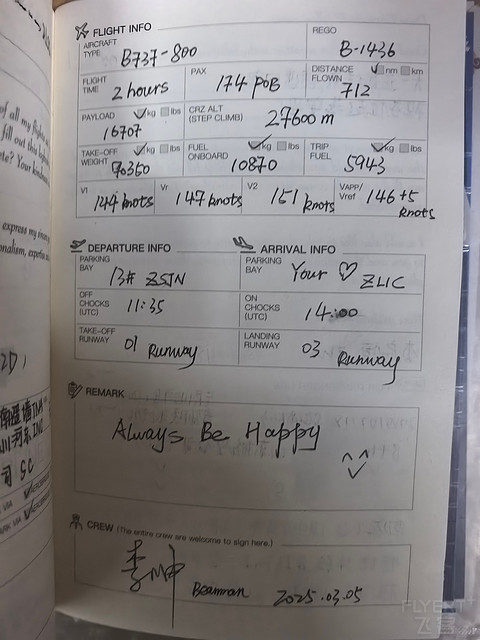 FLIGHT INFO
AIRCRAFT TYPE B737-800 REGO B-1436
FLIGHT TIME 2 hours PAX 174 POB DISTANCE FLOWN ✓nm km 712
PAYLOAD ✓kg lbs 16707 CRZ ALT (STEP CLIMB) 27600 m
TAKE-OFF WEIGHT ✓kg lbs 70350 FUEL ONBOARD ✓kg lbs 10870 TRIP FUEL ✓kg lbs 5943
V1 144 knots Vr 147 knots V2 151 knots VAPP/Vref 146+5 knots
DEPARTURE INFO
PARKING BAY 13# ZSJN
OFF CHOCKS (UTC) 11:35
TAKE-OFF RUNWAY 01 Runway
ARRIVAL INFO
PARKING BAY Your ♡ ZLIC
ON CHOCKS (UTC) 14:00
LANDING RUNWAY 03 Runway
REMARK
Always Be Happy
CREW (The entire crew are welcome to sign here.)
李坤 2025.03.05
of all my flights
fill out this
te? Your kindness
express my sincere
onalism,
司 SC
FLYERT
飞客